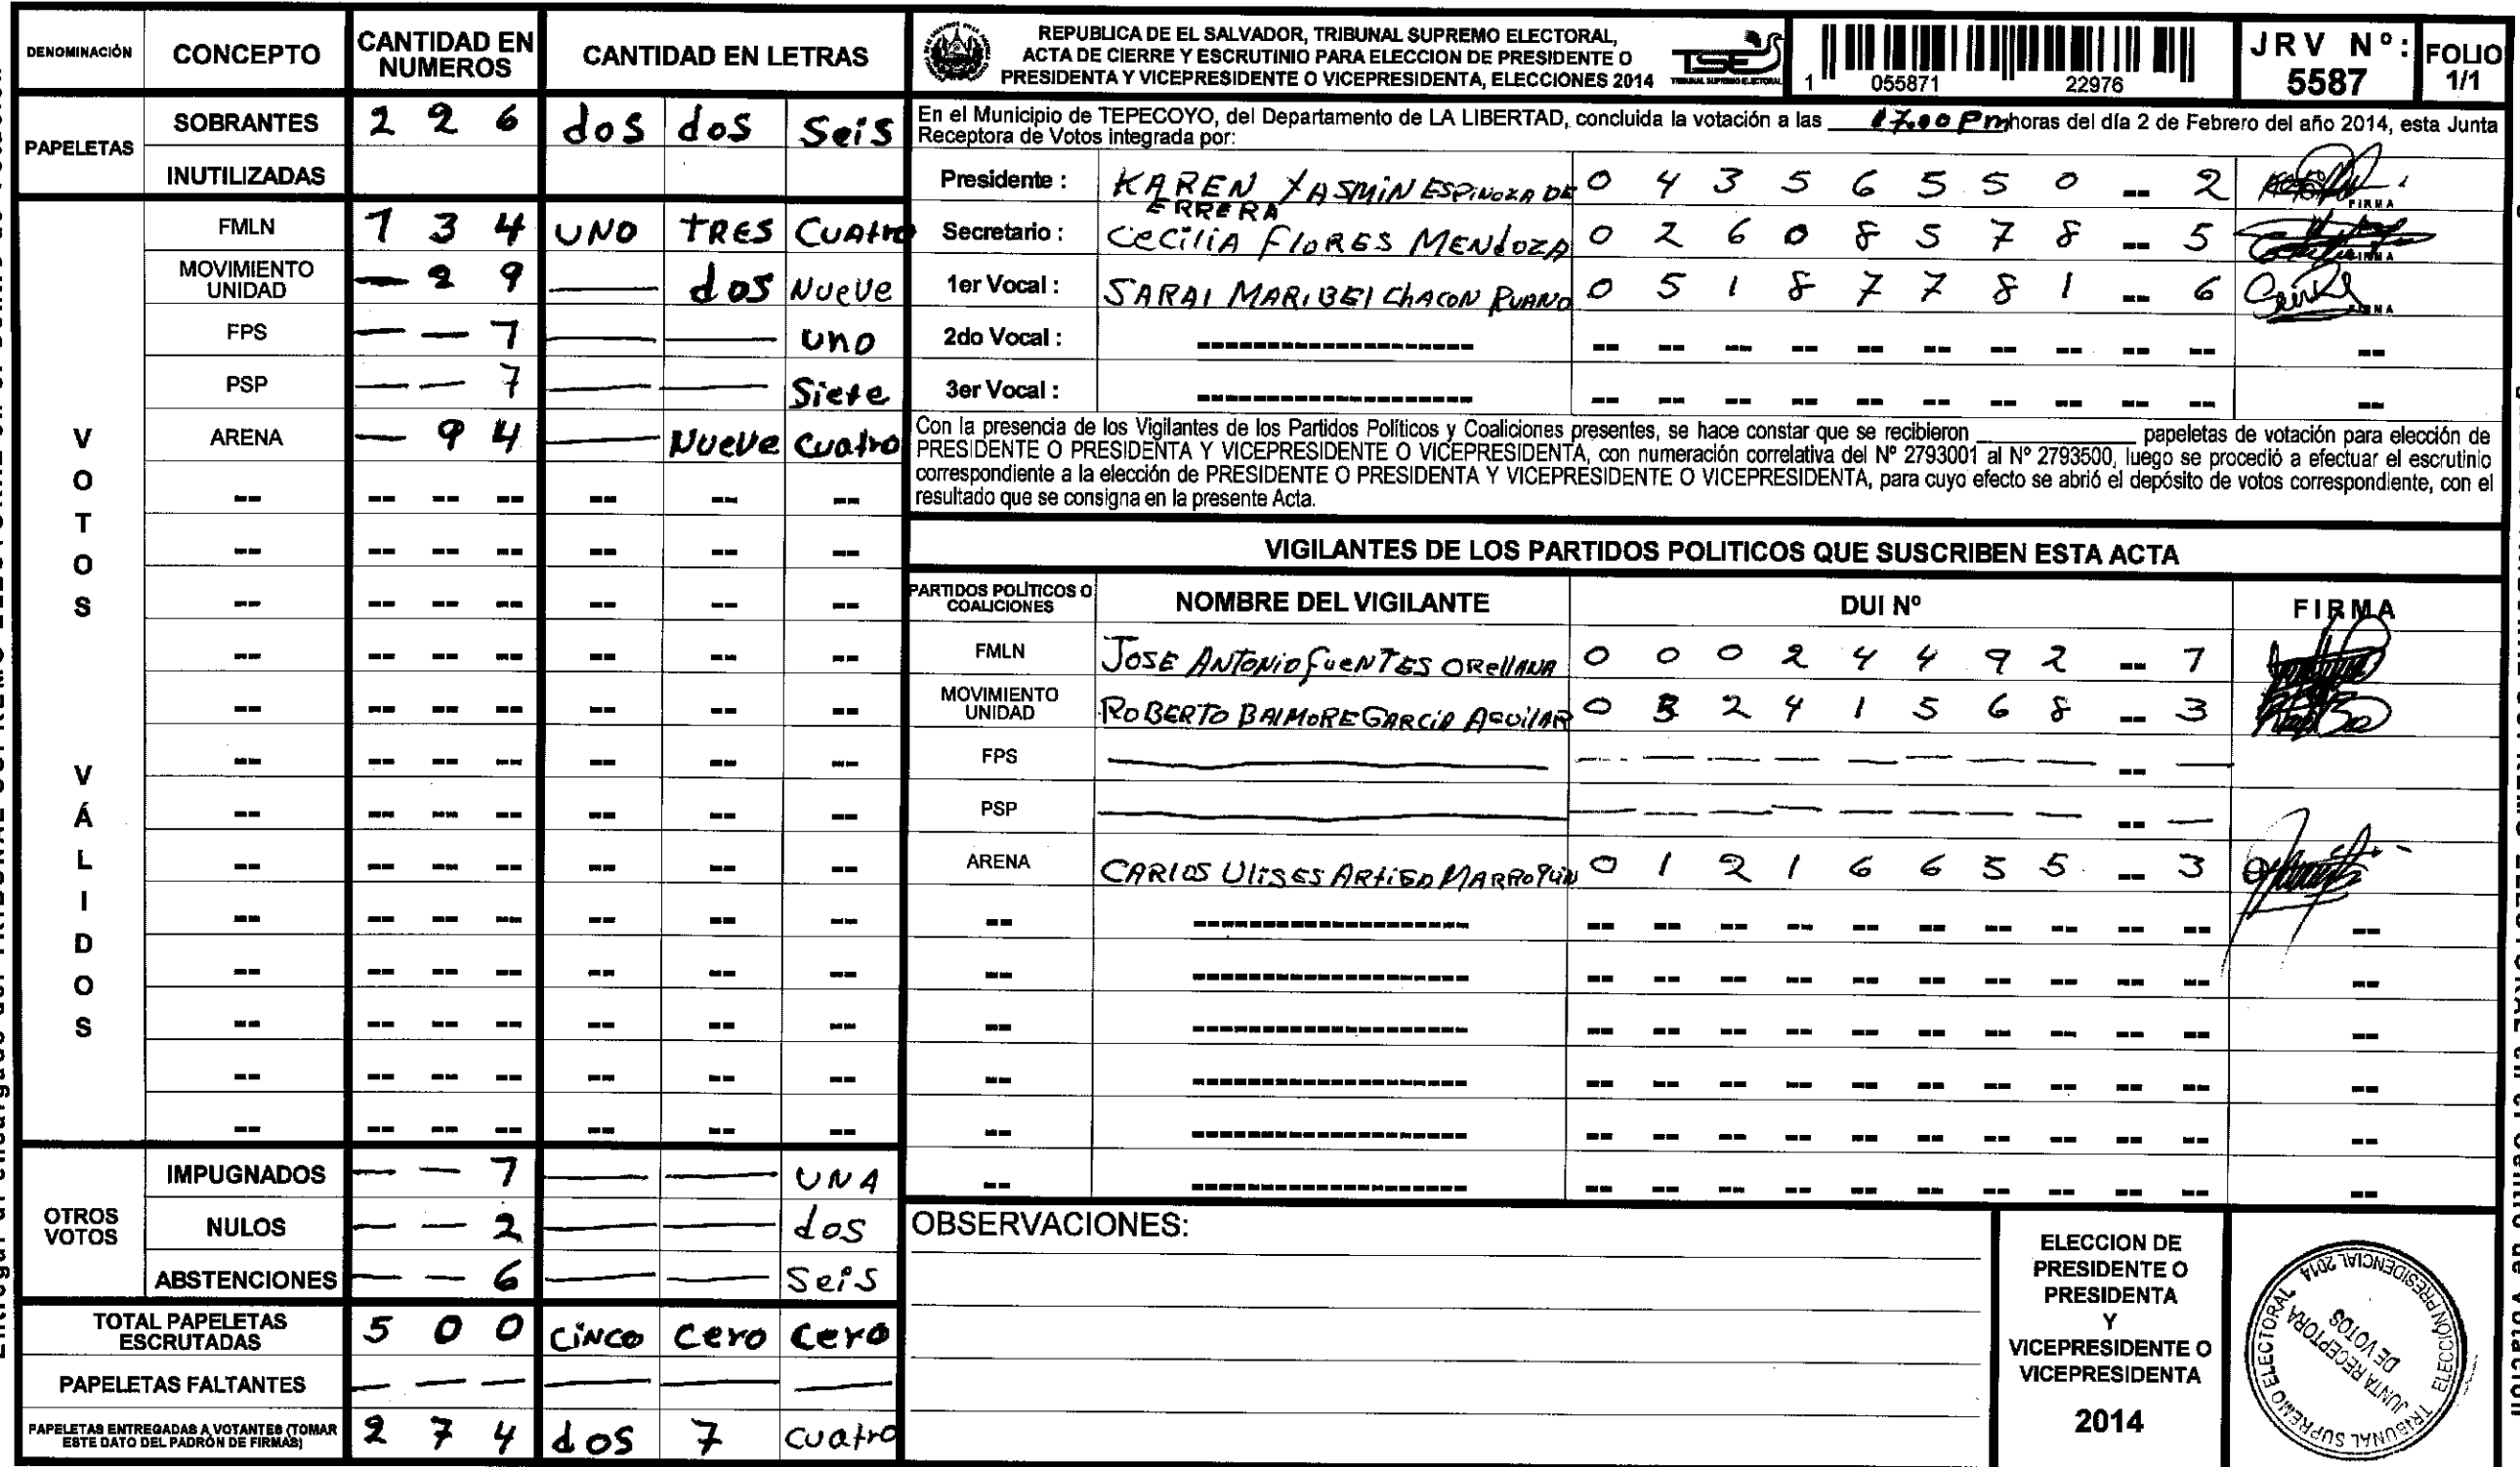 DENOMINACIÓN CONCEPTO CANTIDAD EN NUMEROS CANTIDAD EN LETRAS
PAPELETAS
SOBRANTES 2 2 6 dos dos Seis
INUTILIZADAS
VOTOS VÁLIDOS
FMLN 1 3 4 UNO TRES CUAtro
MOVIMIENTO UNIDAD — 2 9 — dos Nueve
FPS — — 1 — — uno
PSP — — 7 — — Siete
ARENA — 9 4 — Nueve Cuatro
OTROS VOTOS
IMPUGNADOS — — 1 — — UNA
NULOS — — 2 — — dos
ABSTENCIONES — — 6 — — Seis
TOTAL PAPELETAS ESCRUTADAS 5 0 0 CiNco Cero Cero
PAPELETAS FALTANTES — — — — — —
PAPELETAS ENTREGADAS A VOTANTES (TOMAR ESTE DATO DEL PADRÓN DE FIRMAS) 2 7 4 dos 7 cuatro
REPUBLICA DE EL SALVADOR, TRIBUNAL SUPREMO ELECTORAL,
ACTA DE CIERRE Y ESCRUTINIO PARA ELECCION DE PRESIDENTE O
PRESIDENTA Y VICEPRESIDENTE O VICEPRESIDENTA, ELECCIONES 2014
TSE
TRIBUNAL SUPREMO ELECTORAL
1 055871 22976
JRV Nº: 5587
FOLIO 1/1
En el Municipio de TEPECOYO, del Departamento de LA LIBERTAD, concluida la votación a las 17:00 Pm horas del día 2 de Febrero del año 2014, esta Junta
Receptora de Votos integrada por:
Presidente : KAREN YASMiN ESPiNOZA DE ERRERA 0 4 3 5 6 5 5 0 -- 2 FIRMA
Secretario : CeCiliA FlORES MENdOZA 0 2 6 0 8 5 7 8 -- 5 FIRMA
1er Vocal : SARAI MARIBEl ChACON RUANO 0 5 1 8 7 7 8 1 -- 6 FIRMA
2do Vocal :
3er Vocal :
Con la presencia de los Vigilantes de los Partidos Políticos y Coaliciones presentes, se hace constar que se recibieron ________ papeletas de votación para elección de
PRESIDENTE O PRESIDENTA Y VICEPRESIDENTE O VICEPRESIDENTA, con numeración correlativa del Nº 2793001 al Nº 2793500, luego se procedió a efectuar el escrutinio
correspondiente a la elección de PRESIDENTE O PRESIDENTA Y VICEPRESIDENTE O VICEPRESIDENTA, para cuyo efecto se abrió el depósito de votos correspondiente, con el
resultado que se consigna en la presente Acta.
VIGILANTES DE LOS PARTIDOS POLITICOS QUE SUSCRIBEN ESTA ACTA
PARTIDOS POLÍTICOS O COALICIONES NOMBRE DEL VIGILANTE DUI Nº FIRMA
FMLN JOSE ANTONIO FUENTES ORellANA 0 0 0 2 4 4 9 2 -- 7
MOVIMIENTO UNIDAD ROBERTO BAlMORE GARCiA AGUilAR 0 3 2 4 1 5 6 8 -- 3
FPS
PSP
ARENA CARlOS UliSES ARtiGA MARROQUiN 0 1 2 1 6 6 5 5 -- 3
OBSERVACIONES:
ELECCION DE
PRESIDENTE O
PRESIDENTA
Y
VICEPRESIDENTE O
VICEPRESIDENTA
2014
TRIBUNAL SUPREMO ELECTORAL
ELECCIÓN PRESIDENCIAL 2014
JUNTA RECEPTORA
DE VOTOS